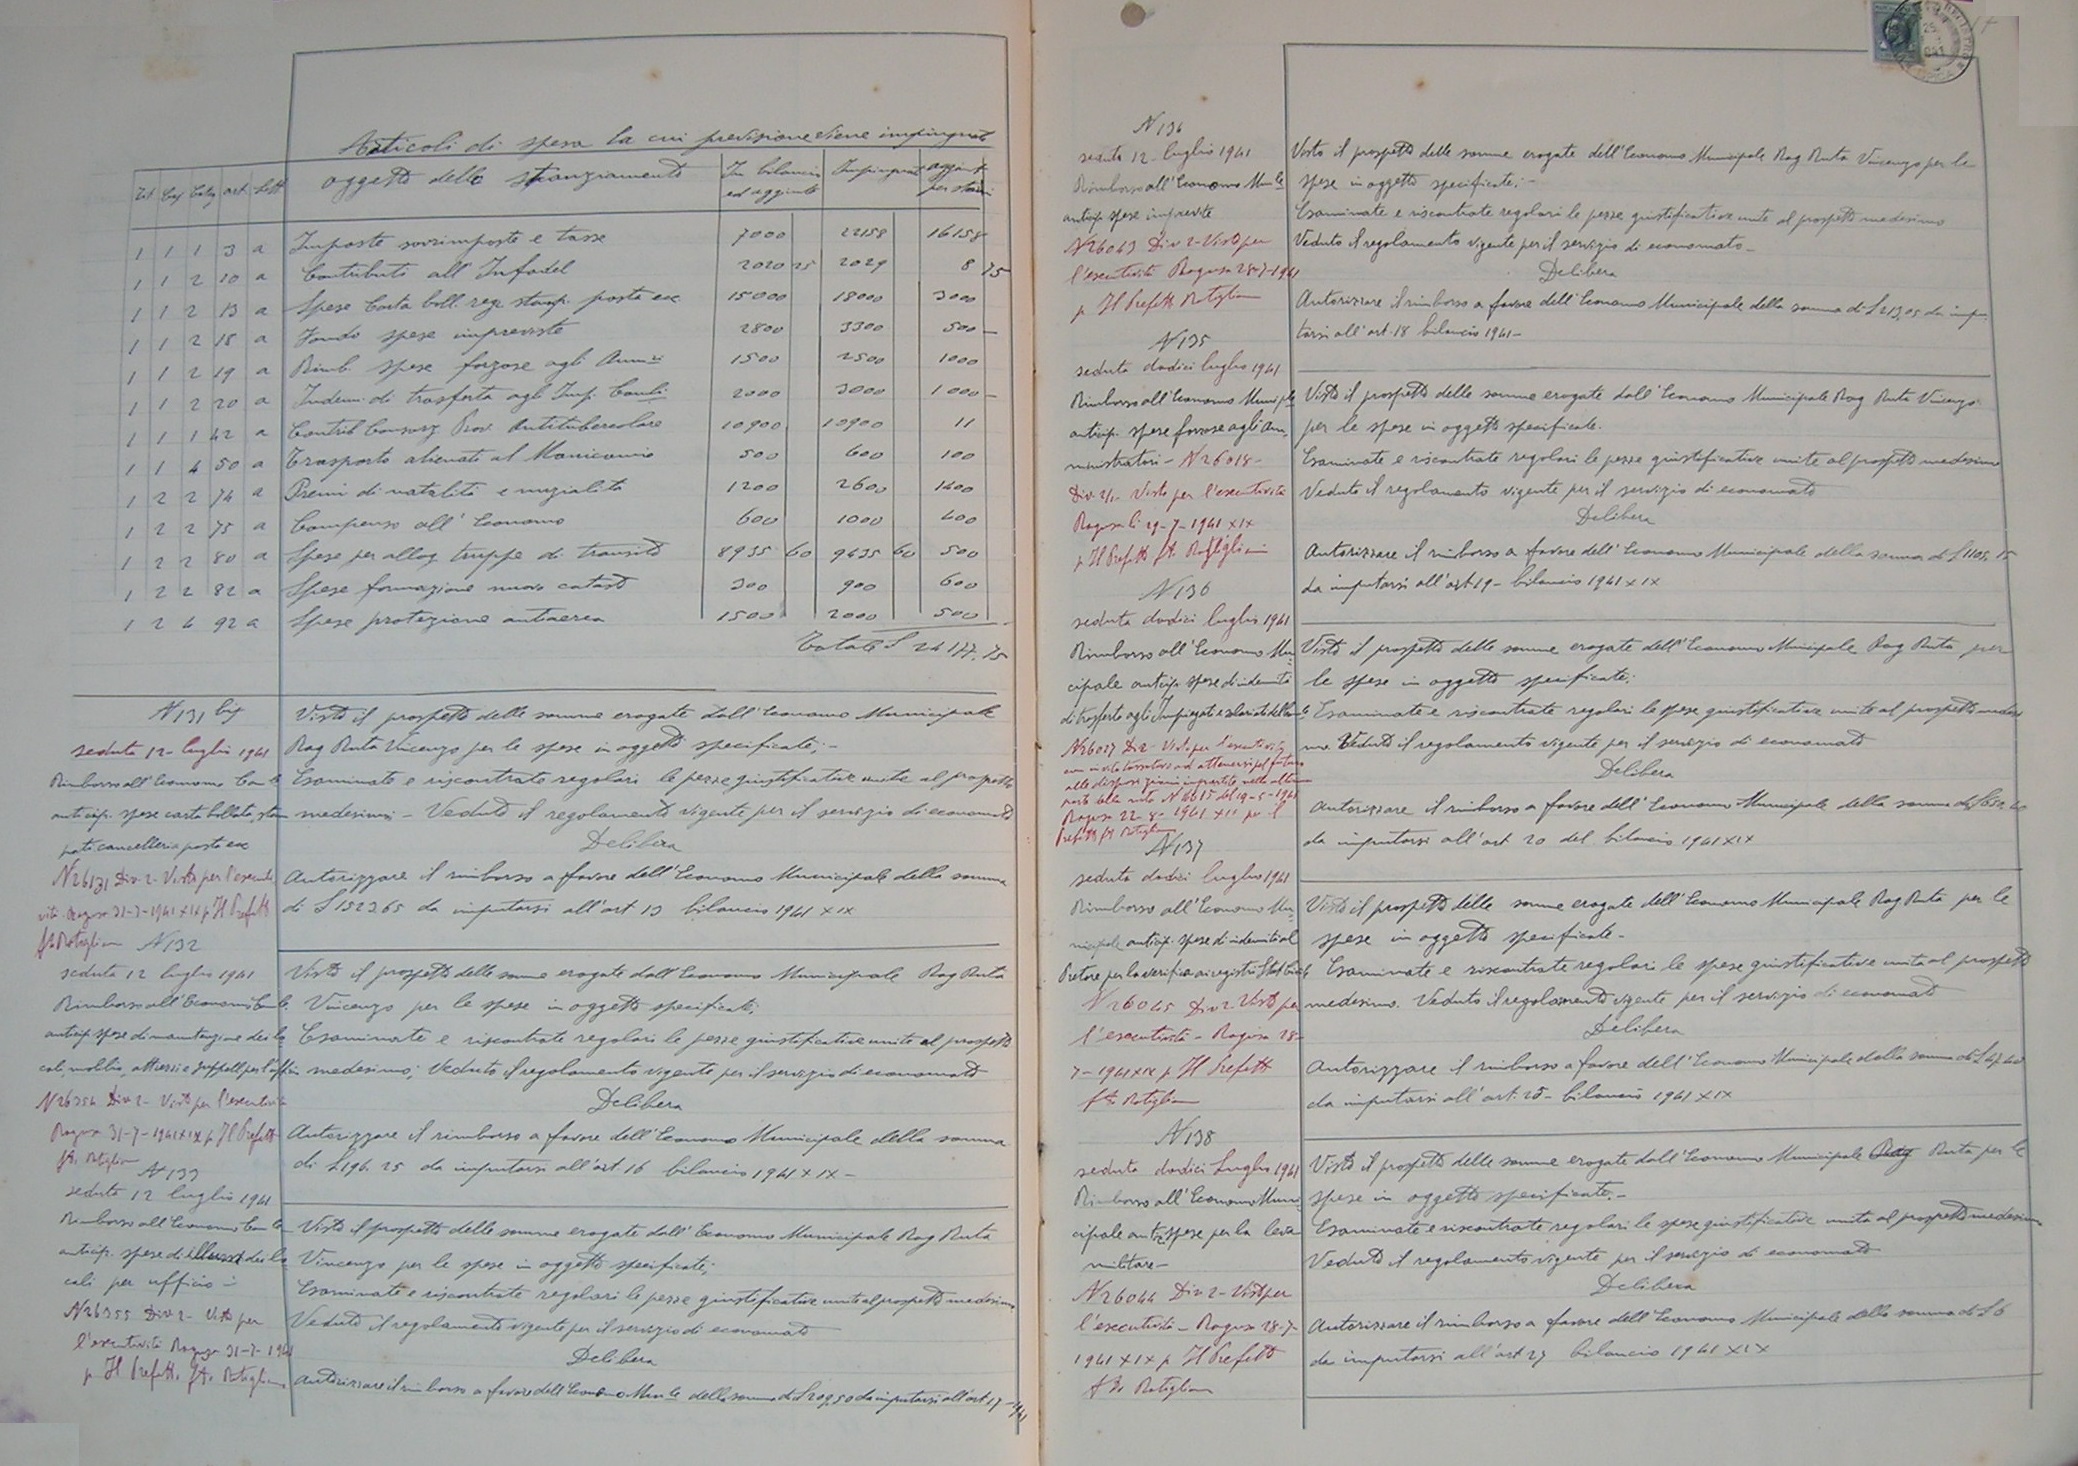 Articoli di spesa la cui previsione viene impinguata
Tit Cap Catg art. Lett oggetto dello stanziamento In bilancio ed aggiunte Impinguat aggiunt. per storni
1 1 1 3 a Imposte sovrimposte e tasse 7000 22158 16158
1 1 2 10 a Contributi all'Infadel 2020 25 2029 8 75
1 1 2 13 a Spese Carta boll. reg. stamp. posta ecc 15000 18000 3000
1 1 2 18 a Fondo spese impreviste 2800 3300 500 —
1 1 2 19 a Rimb. spese forzose agli Amm.ri 1500 2500 1000
1 1 2 20 a Indenn. di trasferta agli Imp. Com.li 2000 3000 1000 —
1 1 1 42 a Contrib Consorz Prov. Antitubercolare 10900 10900 11
1 1 4 50 a Trasporto alienati al Manicomio 500 600 100
1 2 2 74 a Premi di natalità e nuzialità 1200 2600 1400
1 2 2 75 a Compenso all'Economo 600 1000 400
1 2 2 80 a Spese per allog truppe di transito 8935 60 9435 60 500
1 2 2 82 a Spese formazione nuovo catasto 300 900 600
1 2 4 92 a Spese protezione antiaerea 1500 2000 500
Totale £ 24177.75
N 131 bis
seduta 12- luglio 1941
Rimborso all'Economo Com.le
anticip. spese carta bollata, stam
pati cancelleria posta ecc
N 26131 Div 2- Visto per l'esecuti
vità Ragusa 31-7-1941 XIX p Il Prefetto
Visto il prospetto delle somme erogate dall'Economo Municipale
Rag Ruta Vincenzo per le spese in oggetto specificate; -
Esaminate e riscontrate regolari le pezze giustificative unite al prospetto
medesimo - Veduto il regolamento vigente per il servizio di economato
Delibera
Autorizzare il rimborso a favore dell'Economo Municipale della somma
di £ 1523,65 da imputarsi all'art 13 bilancio 1941 XIX
N 132
seduta 12 luglio 1941
Rimborso all'Economo Com.le
anticip. spese di manutenzione dei lo
cali, mobilio, attrezzi e suppell. per l'ufficio
N 26354 Div 2- Visto per l'esecutività
Ragusa 31-7-1941 XIX p Il Prefetto
Visto il prospetto delle somme erogate dall'Economo Municipale Rag Ruta
Vincenzo per le spese in oggetto specificate;
Esaminate e riscontrate regolari le pezze giustificative unite al prospetto
medesimo; Veduto il regolamento vigente per il servizio di economato
Delibera
Autorizzare il rimborso a favore dell'Economo Municipale della somma
di £ 196.25 da imputarsi all'art. 16 bilancio 1941 XIX -
N 133
seduta 12 luglio 1941
Rimborso all'Economo Com.le
anticip. spese di dei lo
cali per ufficio -
N 26355 Div 2- Visto per
l'esecutività Ragusa 31-7-1941
p Il Prefett.
Visto il prospetto delle somme erogate dall'Economo Municipale Rag Ruta
Vincenzo per le spese in oggetto specificate;
Esaminate e riscontrate regolari le pezze giustificative unite al prospetto medesimo
Veduto il regolamento vigente per il servizio di economato
Delibera
Autorizzare il rimborso a favore dell'Economo Mun.le della somma di £ 209,50 da imputarsi all'art 17 - 1941
N 134
seduta 12- luglio 1941
Rimborso all'Economo Mun.le
anticip. spese imprevite
N 26043 Div 2- Visto per
l'esecutività Ragusa 28-7-1941
p Il Prefetto
Visto il prospetto delle somme erogate dell'Economo Municipale Rag Ruta Vincenzo per le
spese in oggetto specificate; -
Esaminate e riscontrate regolari le pezze giustificative unite al prospetto medesimo
Veduto il regolamento vigente per il servizio di economato -
Delibera
Autorizzare il rimborso a favore dell'Economo Municipale della somma di £ 213,05 da impu-
tarsi all'art. 18 bilancio 1941 -
N 135
seduta dodici luglio 1941
Rimborso all'Economo Municip.le
anticip. spese forzose agli Am-
ministratori - N 26018 -
Div 2/1- Visto per l'esecutività
Ragusa li 29-7-1941 XIX
p Il Prefetto
Visto il prospetto delle somme erogate dall'Economo Municipale Rag Ruta Vincenzo
per le spese in oggetto specificate.
Esaminate e riscontrate regolari le pezze giustificative unite al prospetto medesimo
Veduto il regolamento vigente per il servizio di economato
Delibera
Autorizzare il rimborso a favore dell'Economo Municipale della somma di £ 1105,15
da imputarsi all'art 19 - bilancio 1941 XIX
N 136
seduta dodici luglio 1941
Rimborso all'Economo Mu-
nicipale anticip. spese di indennità
di trasferta agli Impiegati e salariati
N 26017 Div 2- Visto per l'esecutività
alle disposizioni impartite
Ragusa 22-8-1941 XIX per il
Visto il prospetto delle somme erogate dell'Economo Municipale Rag Ruta per
le spese in oggetto specificate:
Esaminate e riscontrate regolari le spese giustificative unite al prospetto medesi
mo. Veduto il regolamento vigente per il servizio di economato
Delibera
Autorizzare il rimborso a favore dell'Economo Municipale della somma di
da imputarsi all'art 20 del bilancio 1941 XIX
N 137
seduta dodici luglio 1941
Rimborso all'Economo Mu-
nicipale anticip. spese di indennità al
Pretore per la verifica ai registri Stat Civile
N 26045 Div 2 Visto per
l'esecutività - Ragusa 28-
7-1941 XIX p Il Prefett
Visto il prospetto delle somme erogate dell'Economo Municipale Rag Ruta per le
spese in oggetto specificate -
Esaminate e riscontrate regolari le spese giustificative unite al prospetto
medesimo. Veduto il regolamento vigente per il servizio di economato
Delibera
Autorizzare il rimborso a favore dell'Economo Municipale della somma di
da imputarsi all'art. 25 - bilancio 1941 XIX
N 138
seduta dodici Luglio 1941
Rimborso all'Economo Muni
cipale antic spese per la leva
militare -
N 26044 Div 2- Visto per
l'esecutività - Ragusa 28-7-
1941 XIX p Il Prefetto
Visto il prospetto delle somme erogate dall'Economo Municipale Ruta per le
spese in oggetto specificate. -
Esaminate e riscontrate regolari le spese giustificative unite al prospetto medesimo
Veduto il regolamento vigente per il servizio di economato
Delibera
Autorizzare il rimborso a favore dell'Economo Municipale della somma di £ 6
da imputarsi all'art 27 bilancio 1941 XIX